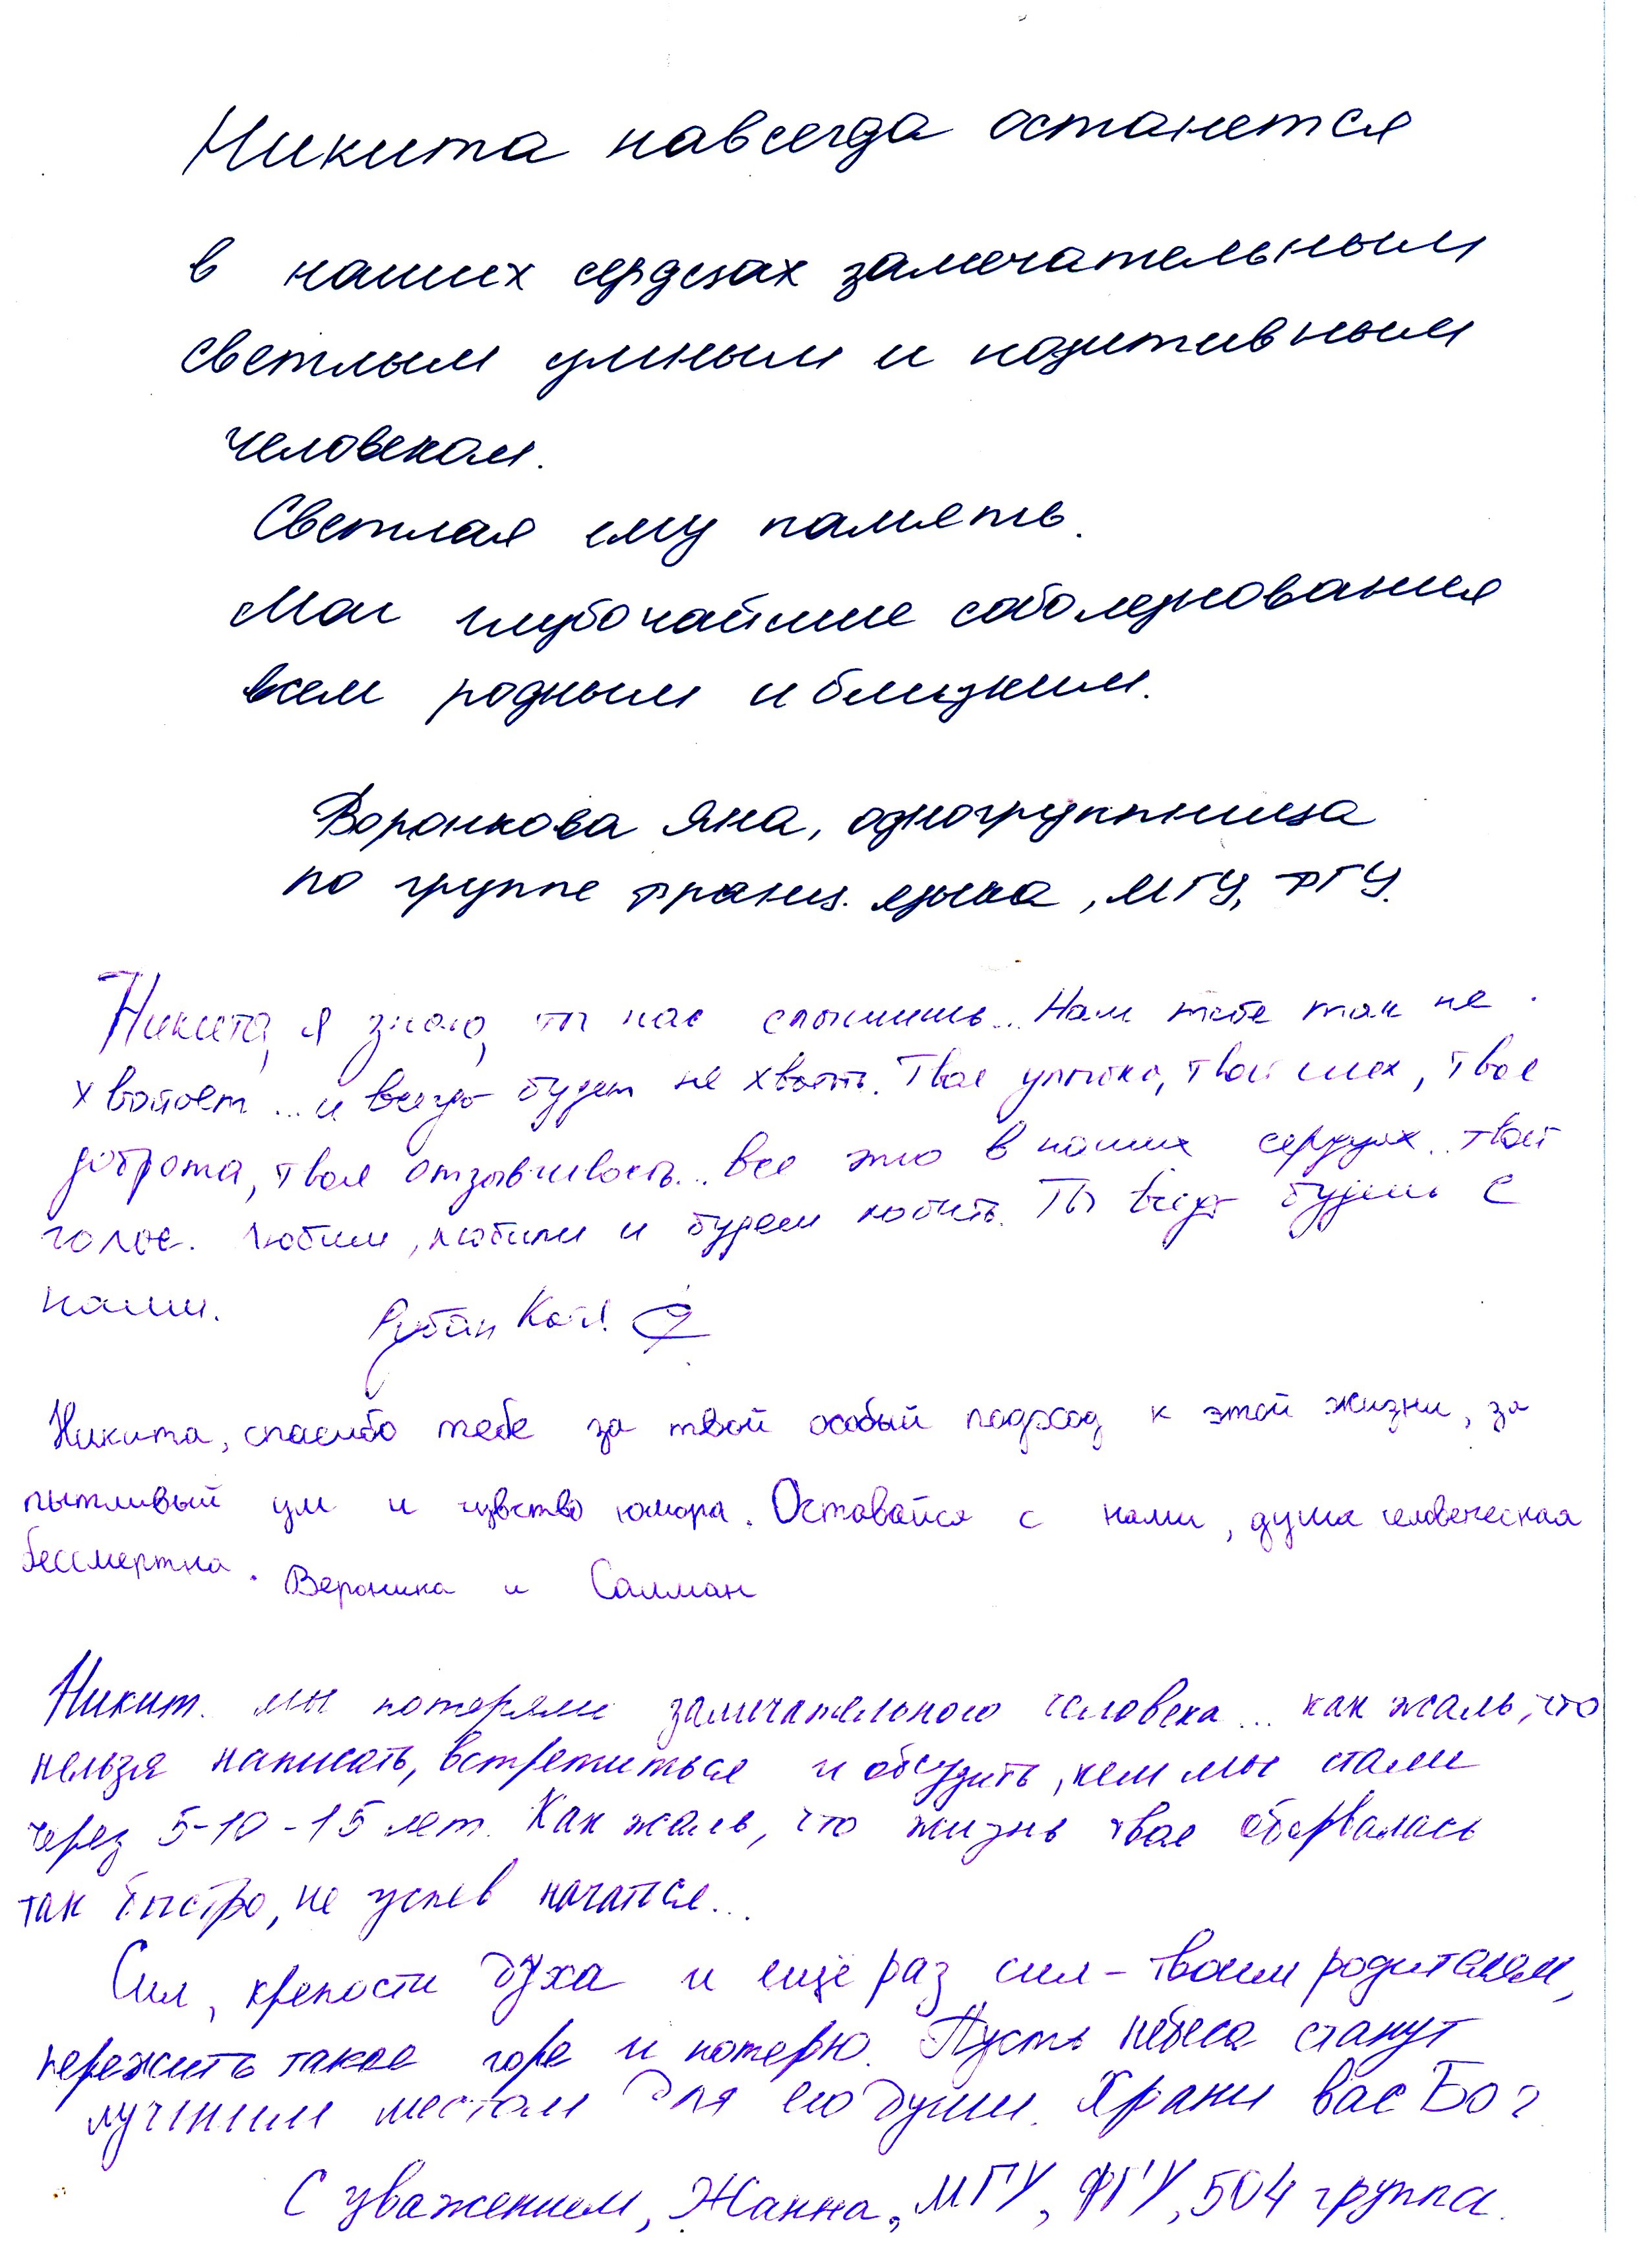 Никита навсегда останется
в наших сердцах замечательным
светлым умным и позитивным
человеком.
Светлая ему память.
Мои глубочайшие соболезнования
всем родным и близким.
Воронкова Яна, одногруппница
по группе франц. языка, МГУ, ФГУ.
Никита, я знаю, ты нас слышишь... Нам тебе так не
хватает... и всегда будет не хватать. Твоя улыбка, твой смех, твоя
доброта, твоя отзывчивость... Все это в наших сердцах... твой
голос. Любим, любили и будем любить. Ты всегда будешь с
нами. Рубан Катя
Никита, спасибо тебе за твой особый подход к этой жизни, за
пытливый ум и чувство юмора. Оставайся с нами, душа человеческая
бессмертна. Вероника и Салман
Никит. мы потеряли замечательного человека... как жаль, что
нельзя написать, встретиться и обсудить, кем мы стали
через 5-10-15 лет. Как жаль, что жизнь твоя оборвалась
так быстро, не успев начаться...
Сил, крепости духа и еще раз сил - твоим родителям,
пережить такое горе и потерю. Пусть небеса станут
лучшим местом для его души. Храни вас Бог
С уважением, Жанна, МГУ, ФГУ, 504 группа.